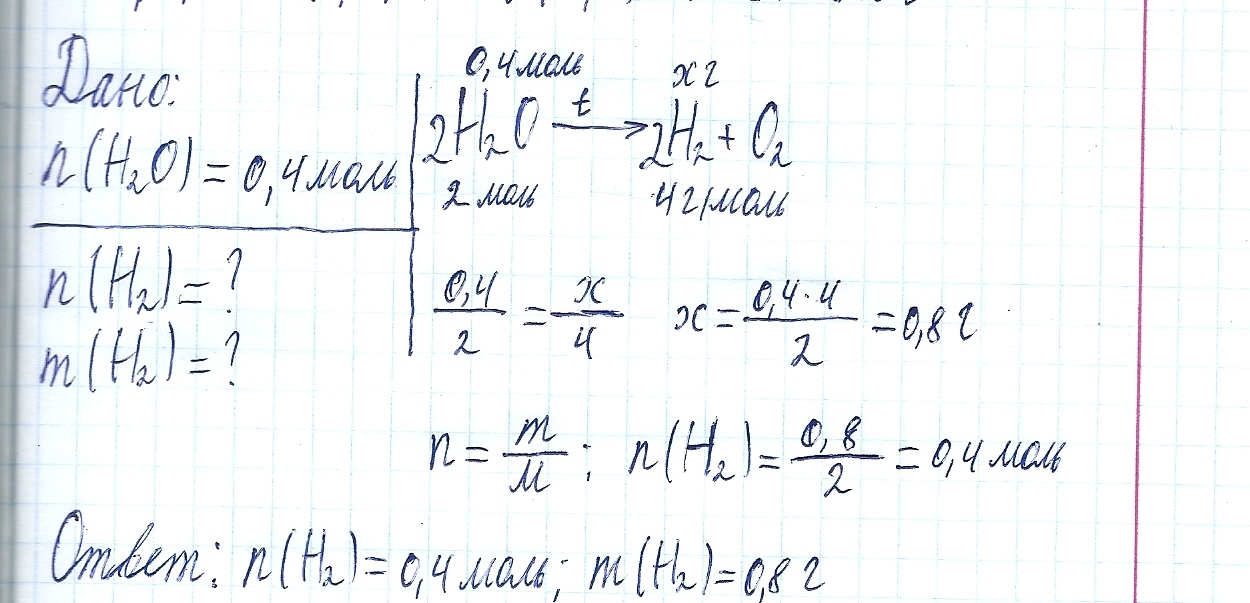 Дано:
n(H₂O) = 0,4 моль
n(H₂) = ?
m(H₂) = ?
0,4 моль x г
2H₂O →t 2H₂ + O₂
2 моль 4 г/моль
0,4/2 = x/4 x = 0,4·4/2 = 0,8 г
n = m/M ; n(H₂) = 0,8/2 = 0,4 моль
Ответ: n(H₂) = 0,4 моль; m(H₂) = 0,8 г